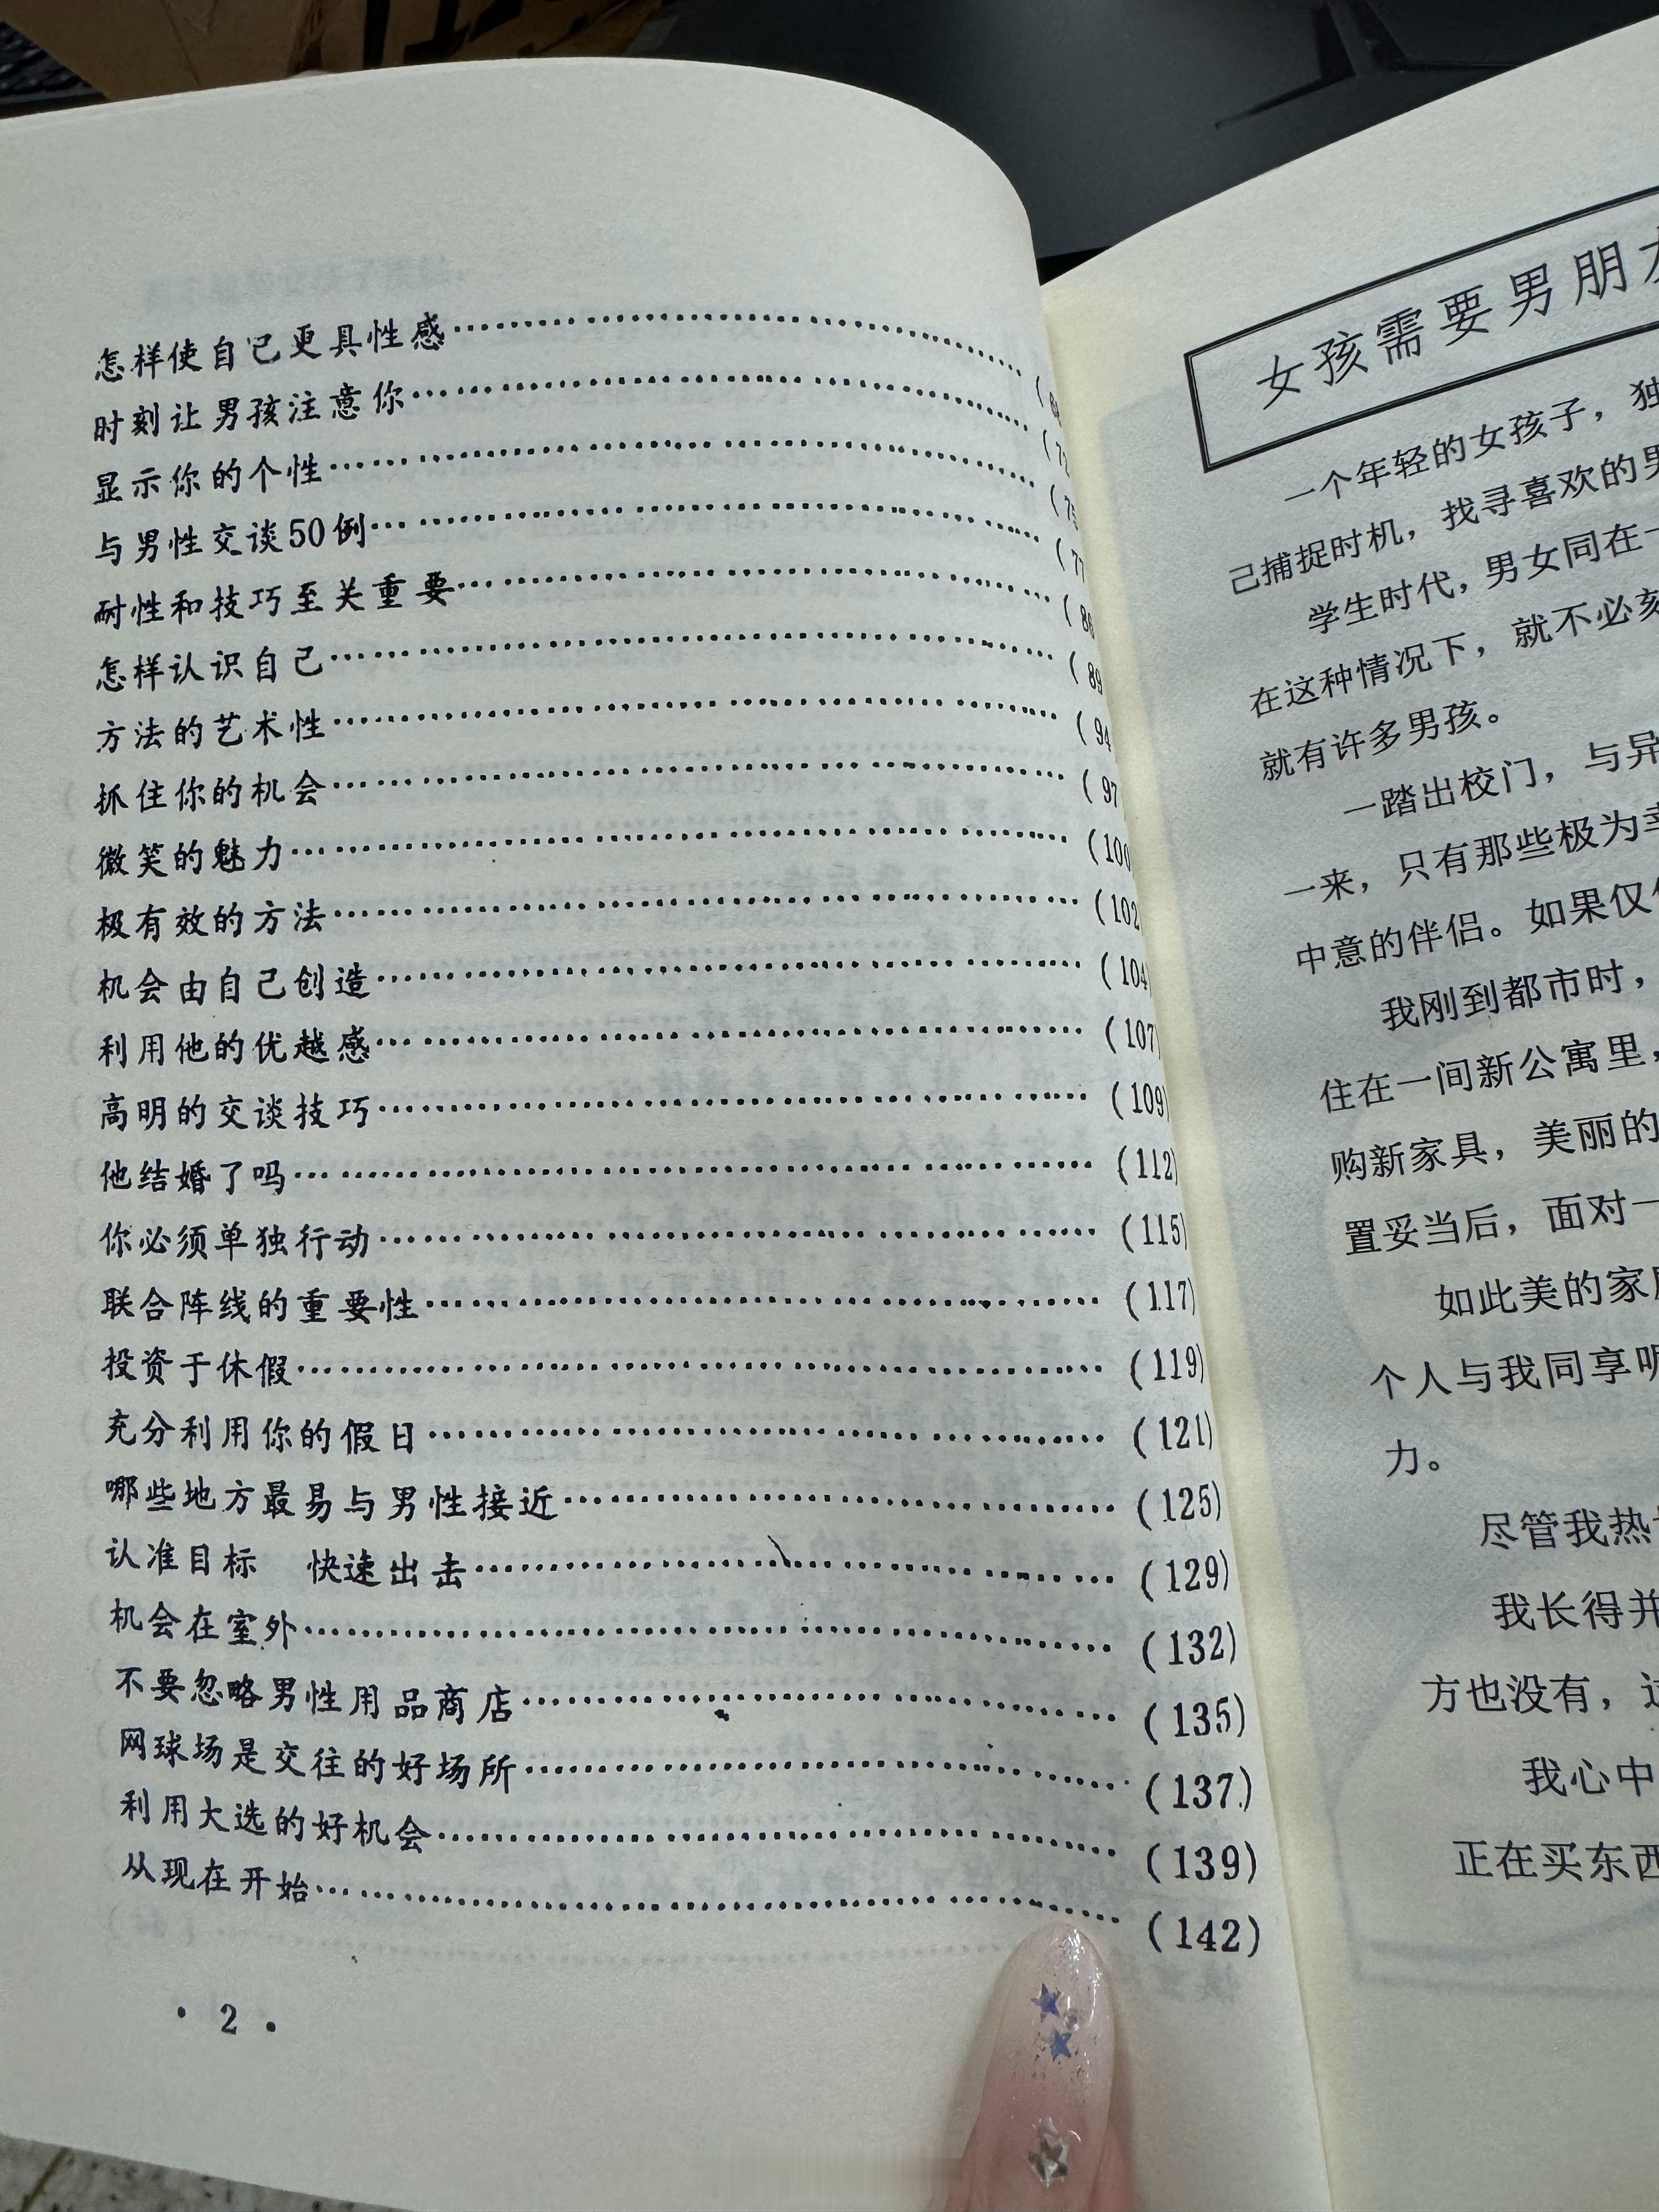 怎样使自己更具性感……………………………………(
时刻让男孩注意你………………………………………(
显示你的个性……………………………………………(75
与男性交谈50例…………………………………………(77
耐性和技巧至关重要……………………………………(86
怎样认识自己……………………………………………(89
方法的艺术性……………………………………………(94
抓住你的机会……………………………………………(97
微笑的魅力………………………………………………(100
极有效的方法……………………………………………(102
机会由自己创造…………………………………………(104
利用他的优越感…………………………………………(107)
高明的交谈技巧…………………………………………(109)
他结婚了吗………………………………………………(112)
你必须单独行动…………………………………………(115)
联合阵线的重要性………………………………………(117)
投资于休假………………………………………………(119)
充分利用你的假日………………………………………(121)
哪些地方最易与男性接近………………………………(125)
认准目标 快速出击……………………………………(129)
机会在室外………………………………………………(132)
不要忽略男性用品商店…………………………………(135)
网球场是交往的好场所…………………………………(137)
利用大选的好机会………………………………………(139)
从现在开始………………………………………………(142)
· 2 ·
女孩需要男朋
一个年轻的女孩子，独
己捕捉时机，找寻喜欢的男
学生时代，男女同在一
在这种情况下，就不必亥
就有许多男孩。
一踏出校门，与异
一来，只有那些极为幸
中意的伴侣。如果仅
我刚到都市时，
住在一间新公寓里，
购新家具，美丽的
置妥当后，面对一
如此美的家
个人与我同享
力。
尽管我热
我长得并
方也没有，这
我心中
正在买东西